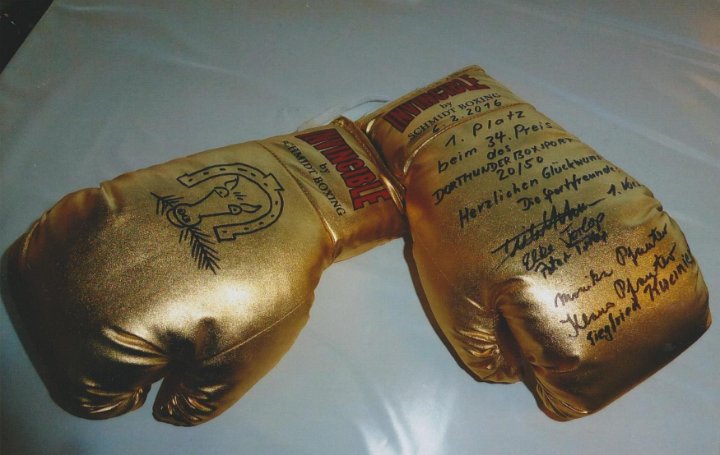 INVINCIBLE
by
SCHMIDT BOXING
INVINCIBLE
by
SCHMIDT BOXING
6.3.2016
1. Platz
beim 34. Preis
des
DORTMUNDER BOXSPORT
20/50
Herzlichen Glückwunsch
Die Sportfreunde
1. Vors.
Elke
Monika Pfauter
Klaus Pfauter
Siegfried